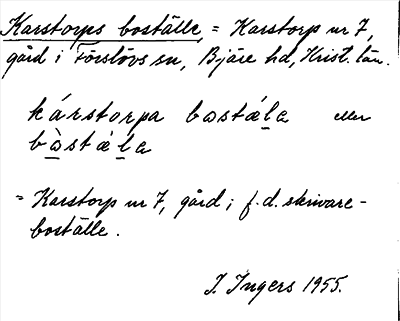 Karstorps boställe = Karstorp nr 7,
gård i Förslövs sn, Bjäre hd, Krist. län.
kárstorpa bostǽla eller
bòstǽla
= Karstorp nr 7, gård i f.d. skrivare-
boställe.
I. Ingers 1955.